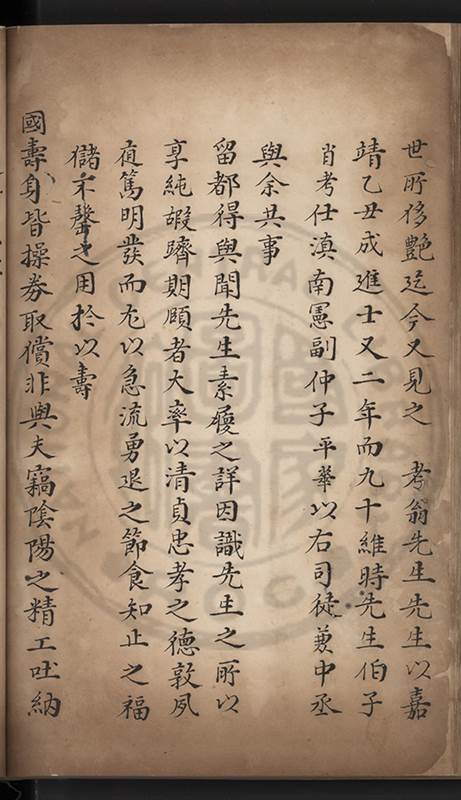 世所侈艷迄今又見之 考翁先生先生以嘉
靖乙丑成進士又二年而九十維時先生伯子
肖考仕滇南憲副仲子平華以右司徒兼中丞
與余共事
留都得與聞先生素履之詳因識先生之所以
享純嘏躋期頤者大率以清貞忠孝之德敦夙
夜篤明發而尢以急流勇退之節食知止之福
儲不罄之用於以壽
國壽身皆操券取償非與夫竊陰陽之精工吐納